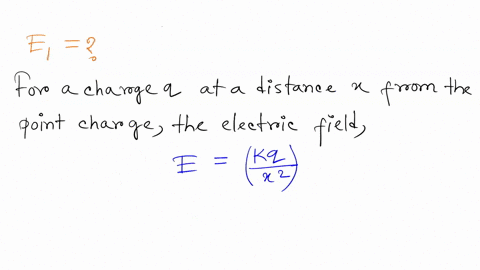 E₁ = ?
For a charge q at a distance x from the
point charge, the electric field,
E = (Kq/x²)